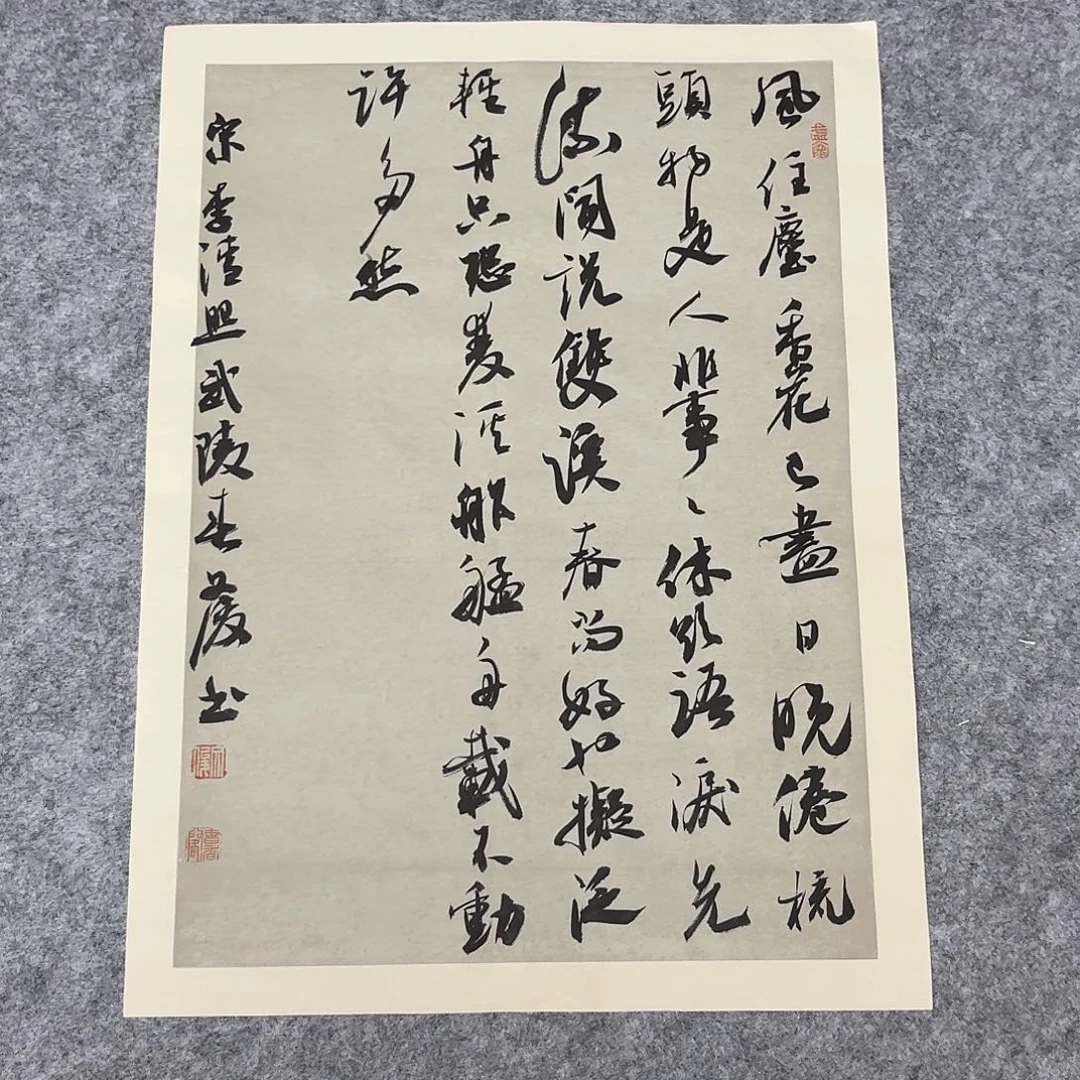 風住塵香花已盡日晚倦梳
頭物是人非事々休欲語淚先
流聞說雙溪春尚好也擬泛
輕舟只恐雙溪舴艋舟載不動
許多愁
宋李清照武陵春 书